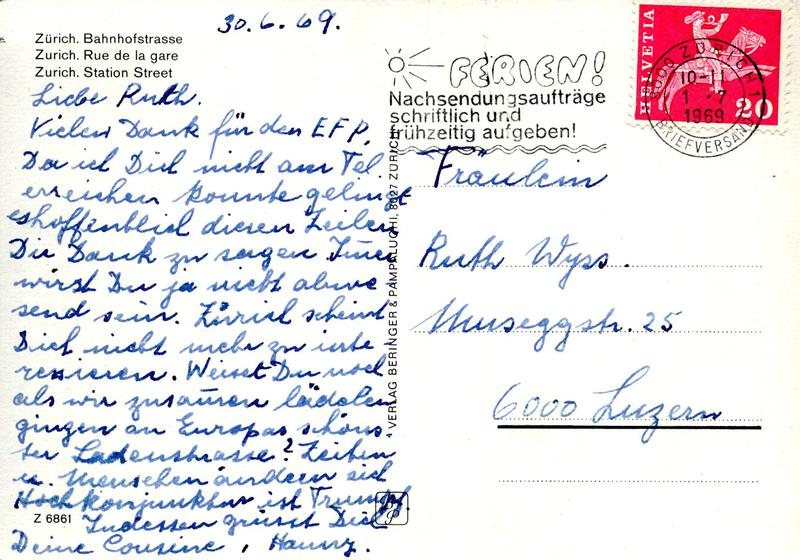 30.6.69.
Zürich. Bahnhofstrasse
Zurich. Rue de la gare
Zurich. Station Street
Liebe Ruth.
Vielen Dank für den EFP.
Da ich Dich nicht am Tel.
erreichen konnte gelinge
es hoffentlich diesen Zeilen
Dir Dank zu sagen Immer
wirst Du ja nicht abwe
send sein. Zürich scheint
Dich nicht mehr zu inte
ressieren. Weisst Du noch
als wir zusamen lädelen
gingen an Europas schöns-
ter Ladenstrasse? Zeiten
u. Menschen ändern sich
Hochkonjunktur ist Trumpf.
Indessen grüsst Dich
Deine Cousine,
Z 6861
VERLAG BERINGER & PAMPALUCHI, 8027 ZÜRICH
FERIEN!
Nachsendungsaufträge
schriftlich und
frühzeitig aufgeben!
HELVETIA
20
8000 ZÜRICH 1
10-11
1.-7
1969
BRIEFVERSAND
Fräulein
Ruth Wyss.
Museggstr. 25
6000 Luzern